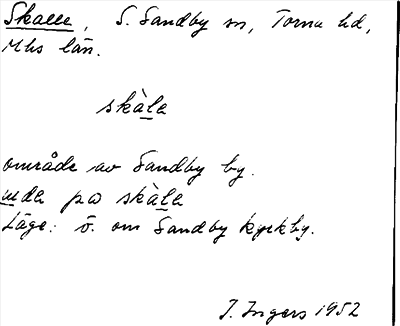 Skalle, S. Sandby sn, Torna hd,
Mhs län.
skàla
område av Sandby by.
uda på skàla
Läge: ö. om Sandby kyrkby.
I. Ingers 1952